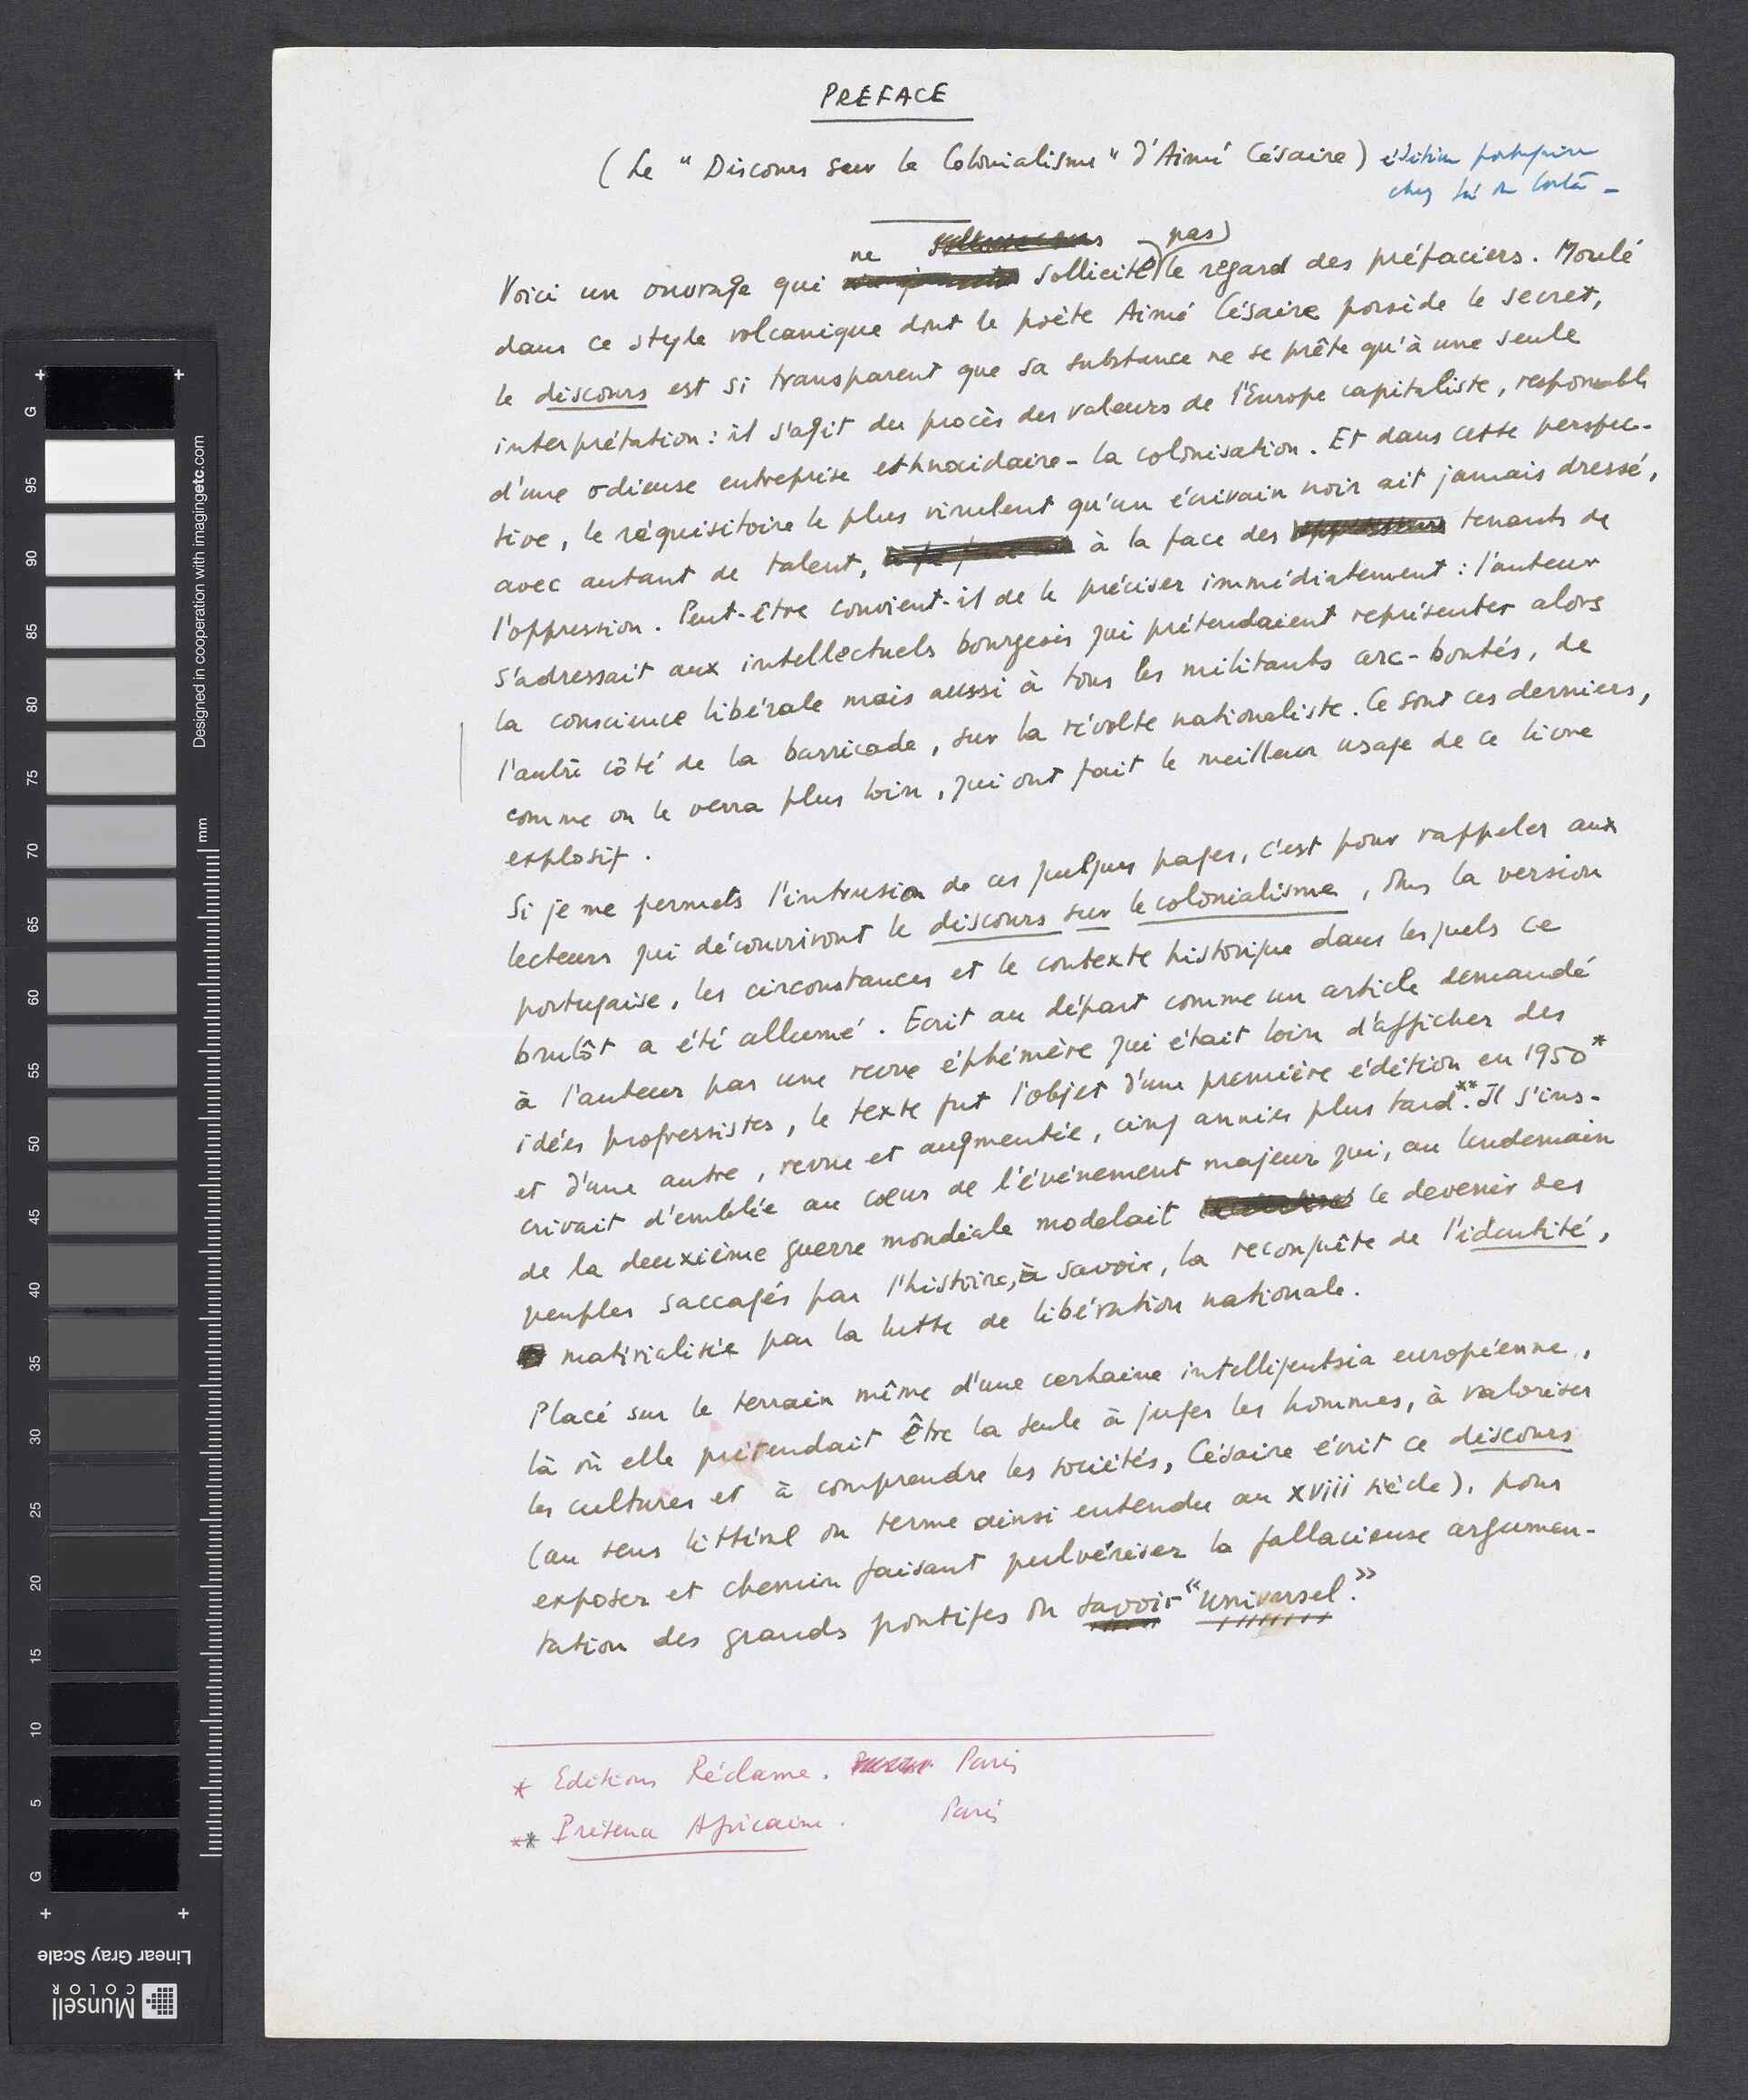 PREFACE
(Le "Discours sur le Colonialisme" d'Aimé Césaire) édition portugaise
chez Sá da Costa -
ne pas
Voici un ouvrage qui sollicite le regard des préfaciers. Moulé
dans ce style volcanique dont le poète Aimé Césaire possède le secret,
le discours est si transparent que sa substance ne se prête qu'à une seule
interprétation : il s'agit du procès des valeurs de l'Europe capitaliste, responsable
d'une odieuse entreprise ethnocidaire - la colonisation. Et dans cette perspec-
tive, le réquisitoire le plus virulent qu'un écrivain noir ait jamais dressé,
avec autant de talent, à la face des tenants de
l'oppression. Peut-être convient-il de le préciser immédiatement : l'auteur
s'adressait aux intellectuels bourgeois qui prétendaient représenter alors
la conscience libérale mais aussi à tous les militants arc-boutés, de
l'autre côté de la barricade, sur la révolte nationaliste. Ce sont ces derniers,
comme on le verra plus loin, qui ont fait le meilleur usage de ce livre
explosif.
Si je me permets l'intrusion de ces quelques pages, c'est pour rappeler aux
lecteurs qui découvriront le discours sur le colonialisme, dans la version
portugaise, les circonstances et le contexte historique dans lesquels ce
brulôt a été allumé. Ecrit au départ comme un article demandé
à l'auteur par une revue éphémère qui était loin d'afficher des
idées progressistes, le texte fut l'objet d'une première édition en 1950*
et d'une autre, revue et augmentée, cinq années plus tard**. Il s'ins-
crivait d'emblée au cœur de l'événement majeur qui, au lendemain
de la deuxième guerre mondiale modelait le devenir des
peuples saccagés par l'histoire, à savoir, la reconquête de l'identité,
matérialisée par la lutte de libération nationale.
Placé sur le terrain même d'une certaine intelligentsia européenne,
là où elle prétendait être la seule à juger les hommes, à valoriser
les cultures et à comprendre les sociétés, Césaire écrit ce discours
(au sens littéral du terme ainsi entendu au XVIII siècle), pour
exposer et chemin faisant pulvériser la fallacieuse argumen-
tation des grands pontifes du savoir "universel."
* Editions Réclame. Paris
** Présence Africaine. Paris
Designed in cooperation with imagingetc.com
mm
G
95
90
85
80
75
70
65
60
55
50
45
40
35
30
25
20
15
10
5
G
Linear Gray Scale
Munsell
COLOR